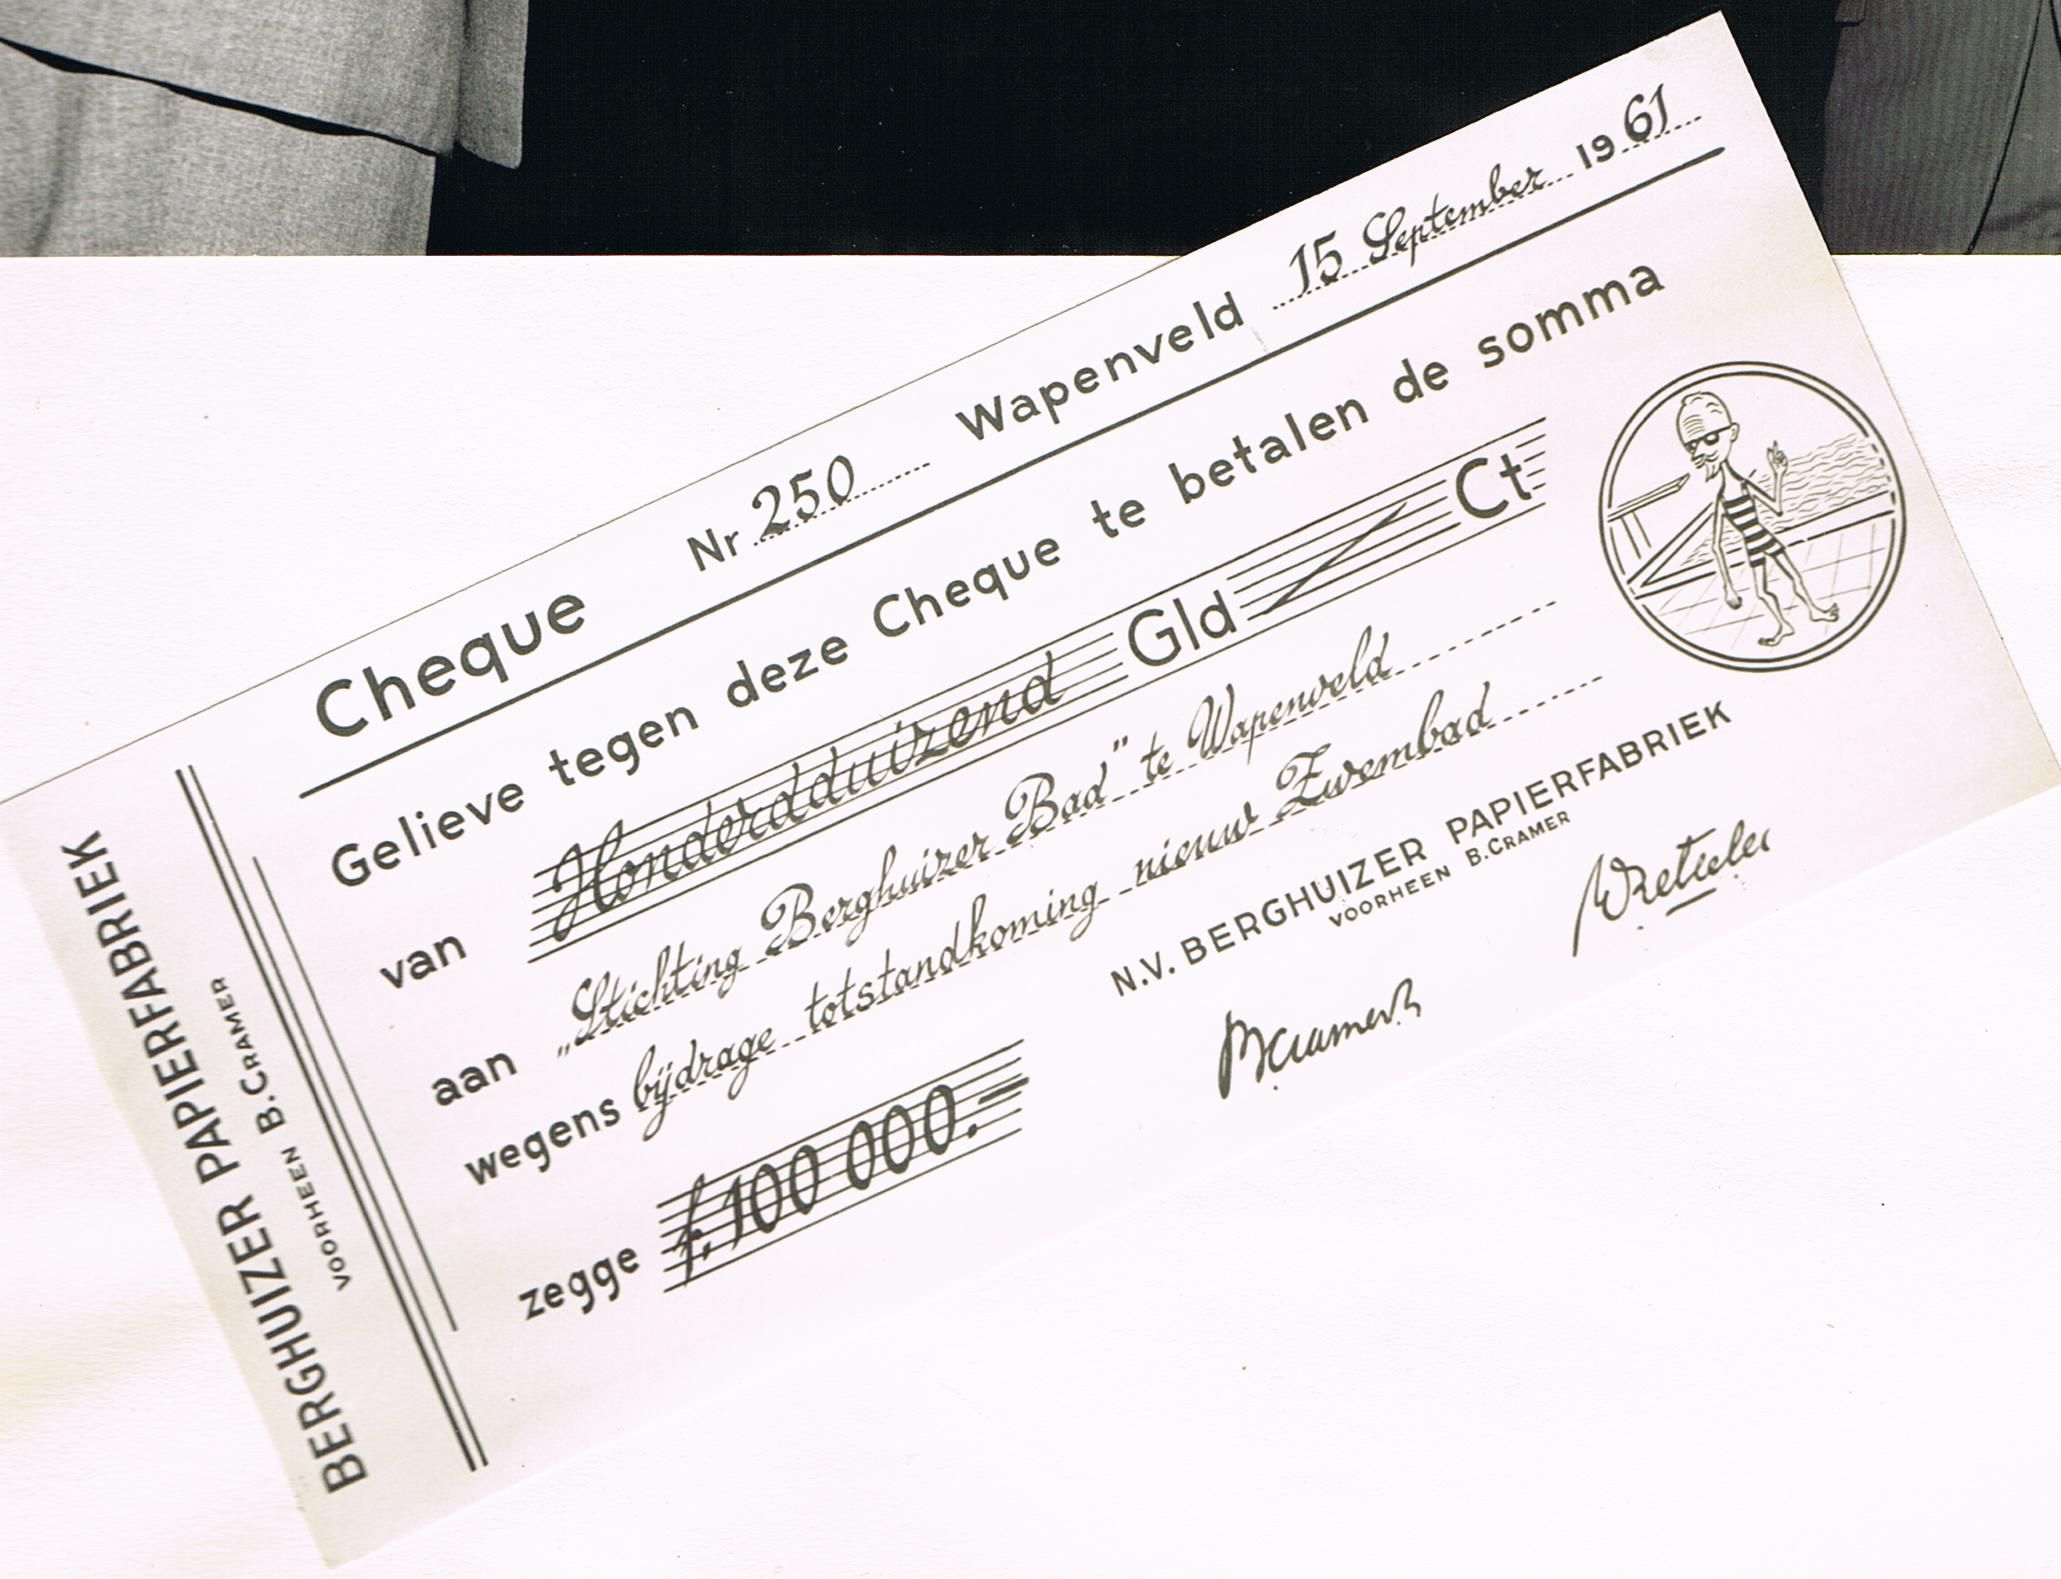 BERGHUIZER PAPIERFABRIEK
VOORHEEN B.CRAMER
Cheque Nr 250 Wapenveld 15 September 1961
Gelieve tegen deze Cheque te betalen de somma
van Honderdduizend Gld Ct
aan „Stichting Berghuizer Bad” te Wapenveld
wegens bijdrage totstandkoming nieuw Zwembad
zegge f. 100 000.-
N.V. BERGHUIZER PAPIERFABRIEK
VOORHEEN B.CRAMER